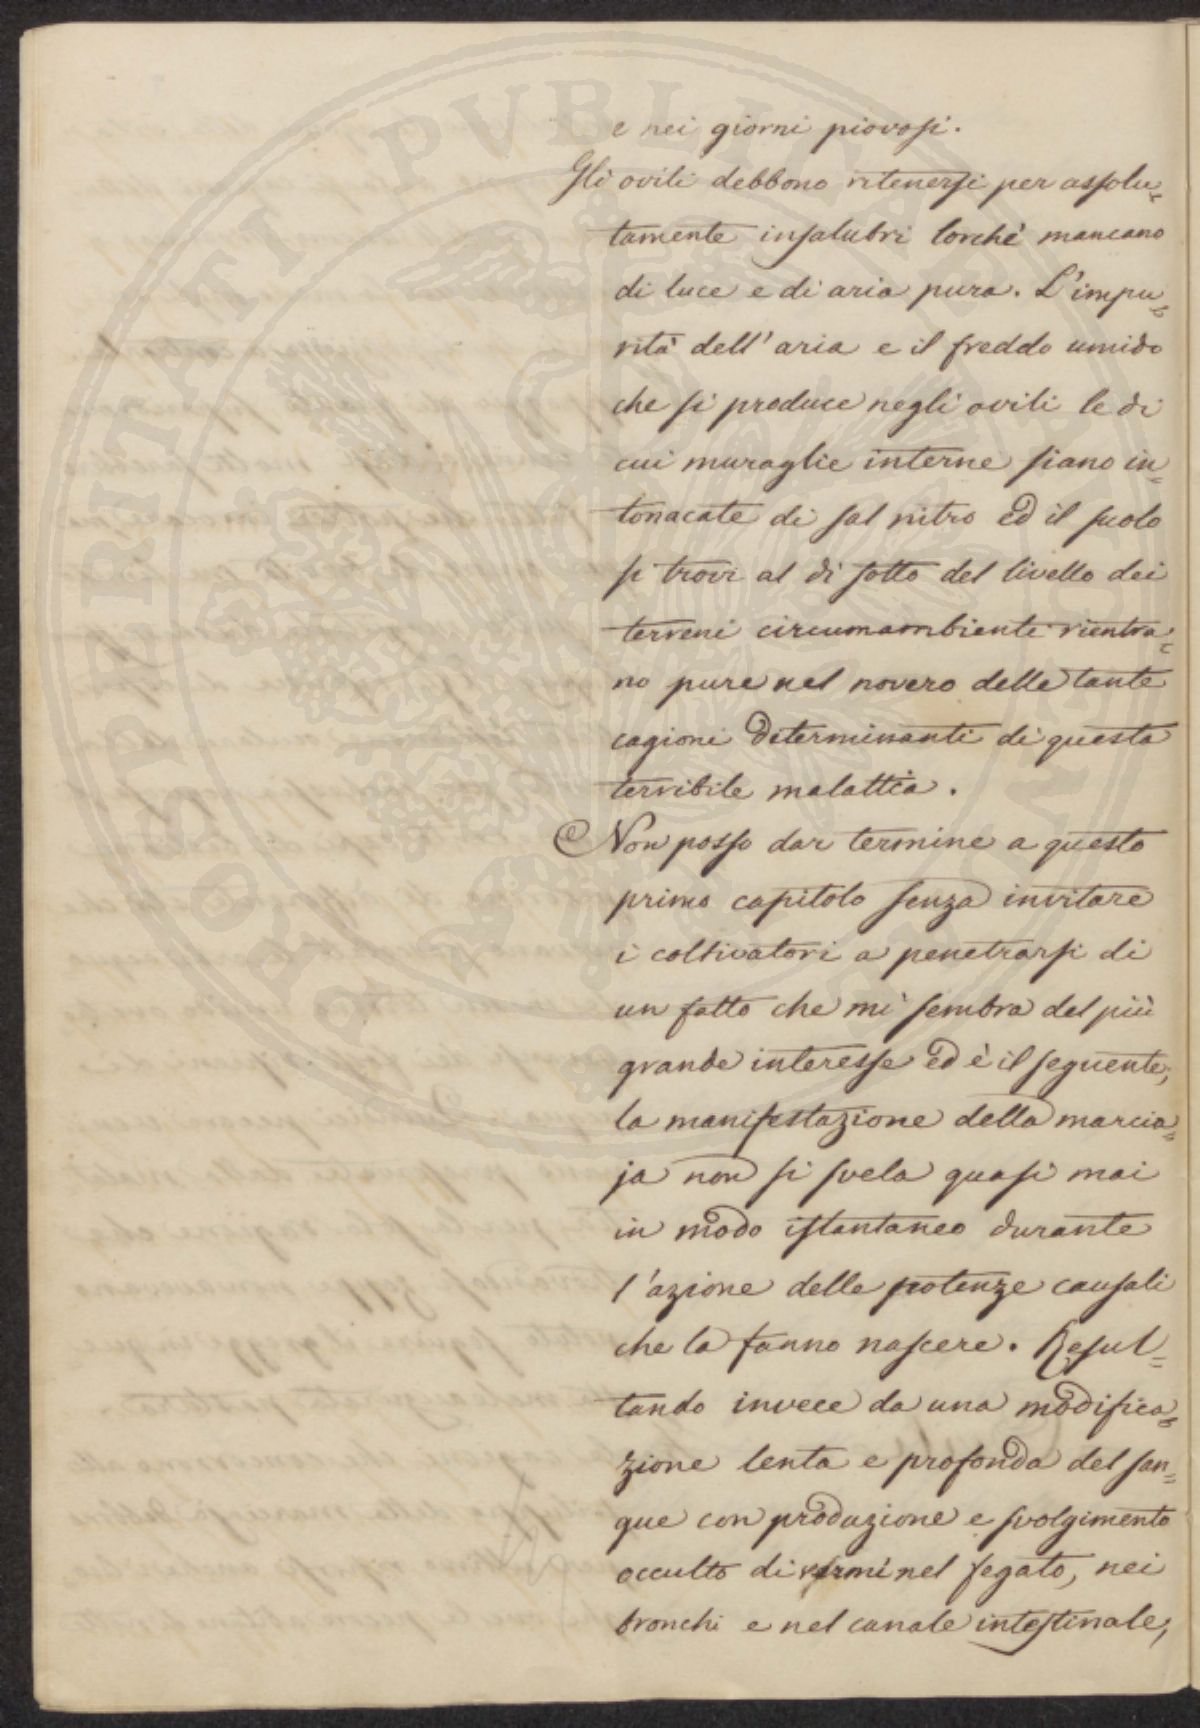 e nei giorni piovosi.
Gli ovili debbono ritenersi per assolu=
tamente insalubri lorchè mancano
di luce e di aria pura. L'impu=
rità dell'aria e il freddo umido
che si produce negli ovili le di
cui muraglie interne siano in=
tonacate di sal nitro ed il suolo
si trovi al di sotto del livello dei
terreni circumambienti rientra=
no pure nel novero delle tante
cagioni determinanti di questa
terribile malattia.
Non posso dar termine a questo
primo capitolo senza invitare
i coltivatori a penetrarsi di
un fatto che mi sembra del più
grande interesse ed è il seguente;
la manifestazione della marcia=
ja non si svela quasi mai
in modo istantaneo durante
l'azione delle potenze causali
che la fanno nascere. Resul=
tando invece da una modifica=
zione lenta e profonda del san=
gue con produzione e svolgimento
occulto di vermi nel fegato, nei
bronchi e nel canale intestinale,
PROSPERITATI PVBLICAE